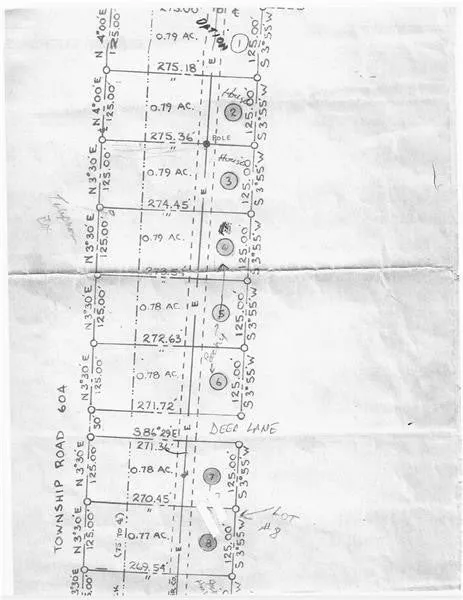 273.00
¢
DATION
1
N 4°00'E
125.00'
0.79 AC.
125.00'
S 3°55'W
E
275.18'
N 4°00'E
125.00'
0.79 AC.
House
2
125.00'
S 3°55'W
275.36'
POLE
N 3°30'E
125.00'
0.79 AC.
House
3
125.00'
S 3°55'W
274.45'
E
N 3°30'E
125.00'
0.79 AC.
4
125.00'
S 3°55'W
273.54'
E
N 3°30'E
125.00'
0.78 AC.
5
125.00'
S 3°55'W
272.63'
N 3°30'E
125.00'
0.78 AC.
6
125.00'
S 3°55'W
271.72'
E
TOWNSHIP ROAD 604
50'
S 86°29'E
DEER LANE
271.36'
N 3°30'E
125.00'
0.78 AC.
7
125.00'
S 3°55'W
270.45'
E
LOT
#8
125.00'
(75 TO ¢)
0.77 AC.
8
125.00'
S 3°55'W
269.54'
E
3°30'E